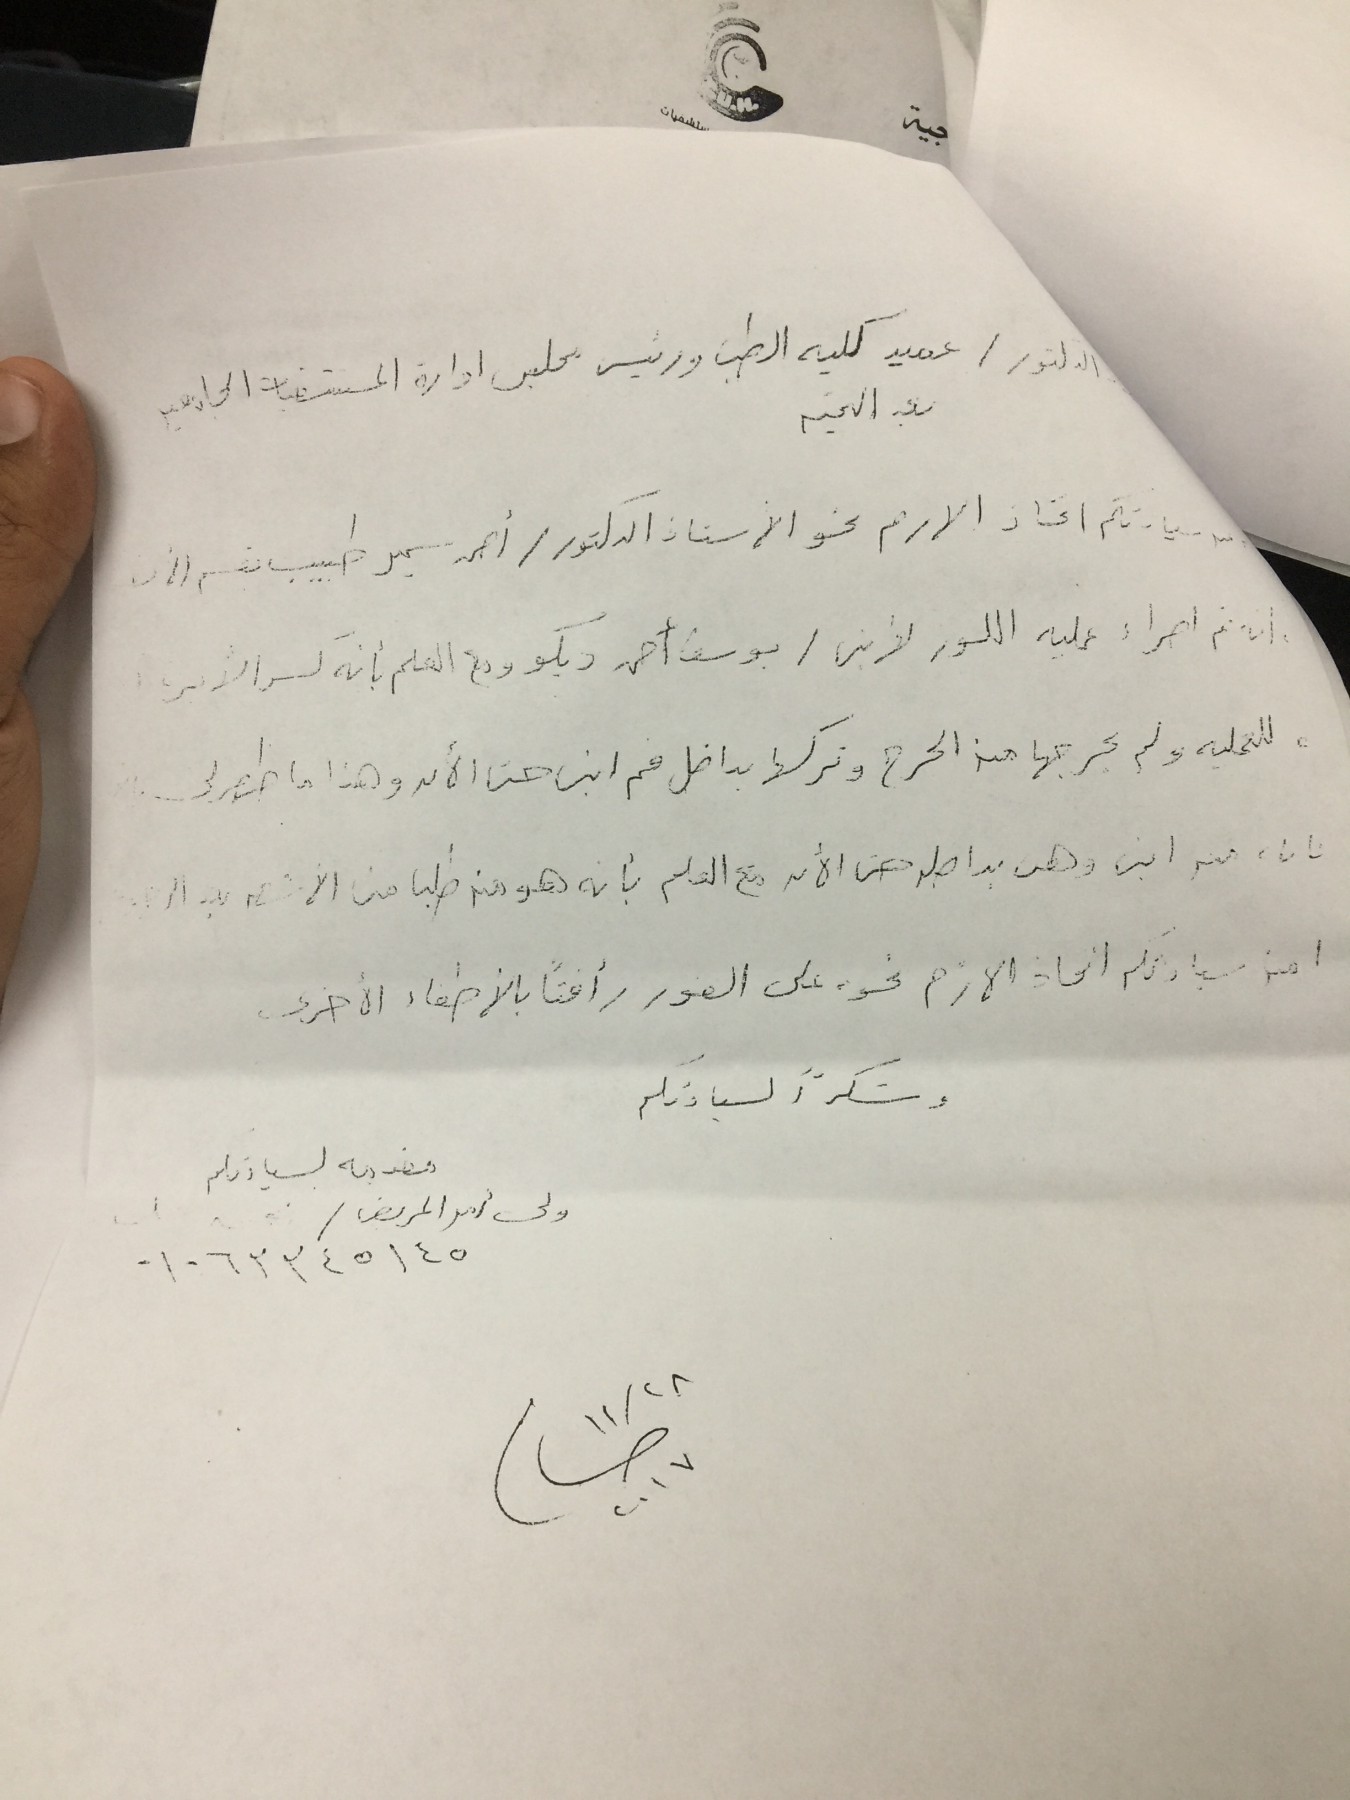 U.H.
جية
الدكتور / عميد كليه الطب ورئيس مجلس ادارة المستشفيات الجامعيه
بعد التحيه
سيادتكم اتخاذ الازم نحو الأستاذ الدكتور / أحمد سمير طبيب بقسم الأنف
انه تم اجراء عمليه اللوز لأبنى / يوسف أحمد ديكو ومع العلم بأنه كسر الأبره
للعمليه ولم يخرجها من الجرح وتركها بداخل فم ابنى حتى الأن وهذا ما ظهر لى
من ابنى وهى بداخله حتى الأن مع العلم بأنه هو من طلبا منى الأشعه بعد
من سيادتكم اتخاذ الازم نحوه على الفور رأفتاً بالأطفال الأخرى
وشكراً لسيادتكم
مقدمه لسيادتكم
ولى أمر المريض /
٠١٠٦٢٢٤٥١٤٥
١١/٢٨
٢٠١٧